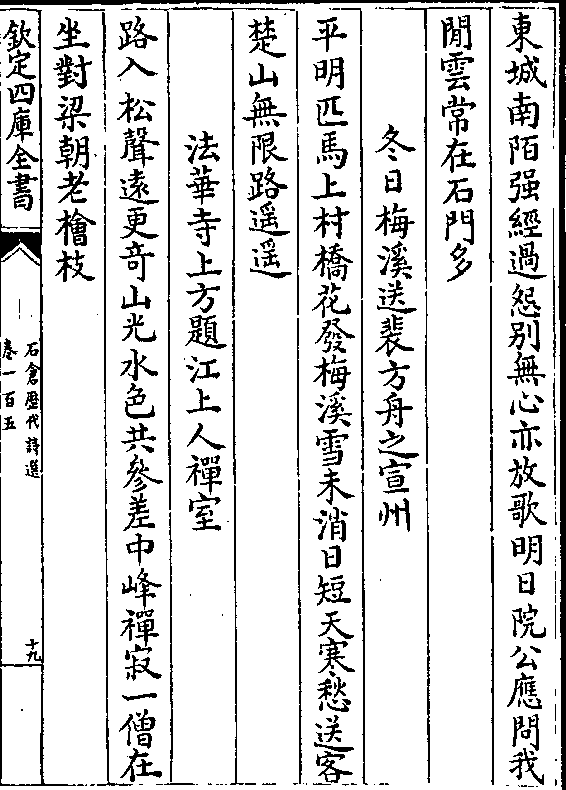 東城南陌强經過怨别無心亦放歌明日院公應問我
閒雲常在石門多
冬日梅溪送裴方舟之宣州
平明匹馬上村橋花發梅溪雪未消日短天寒愁送客
楚山無限路遥遥
法華寺上方題江上人禪室
路入松聲遠更奇山光水色共參差中峰禪寂一僧在
坐對梁朝老檜枝
欽定四庫全書
石倉歷代詩選
卷一百五
十九